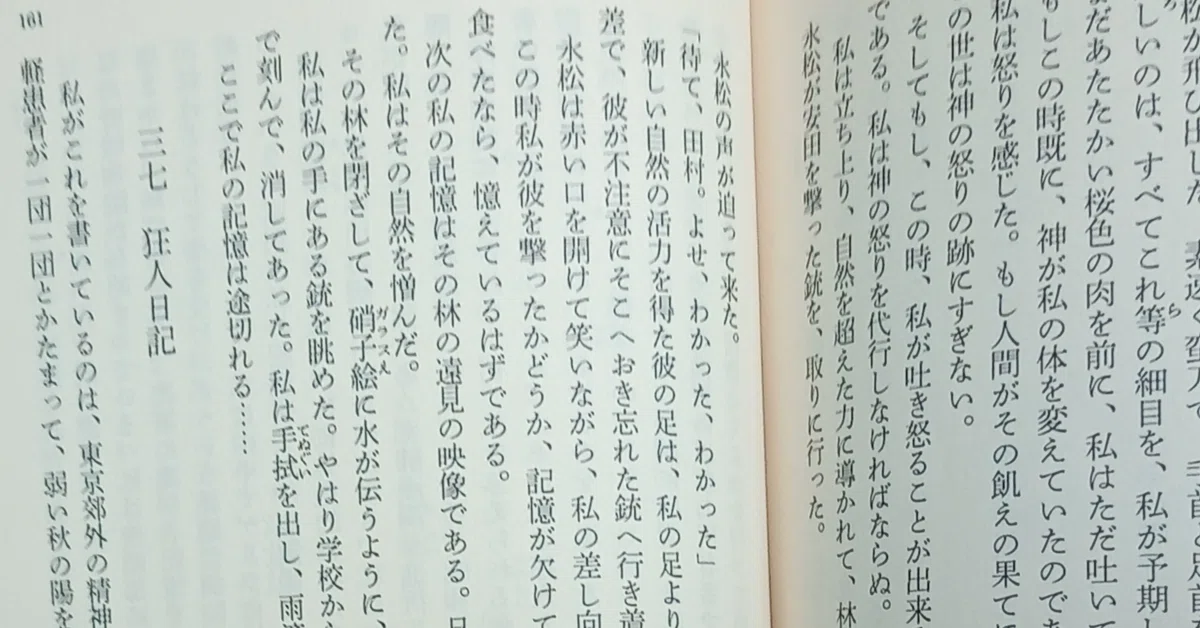 しいのは、すべてこれ等の細目を、私が予期し
まだあたたかい桜色の肉を前に、私はただ吐いて
もしこの時既に、神が私の体を変えていたのであ
私は怒りを感じた。もし人間がその飢えの果てに
の世は神の怒りの跡にすぎない。
そしてもし、この時、私が吐き怒ることが出来
である。私は神の怒りを代行しなければならぬ。
私は立ち上り、自然を超えた力に導かれて、林
永松が安田を撃った銃を、取りに行った。
永松の声が迫って来た。
「待て、田村。よせ、わかった、わかった」
新しい自然の活力を得た彼の足は、私の足より
差で、彼が不注意にそこへおき忘れた銃へ行き着
永松は赤い口を開けて笑いながら、私の差し向
この時私が彼を撃ったかどうか、記憶が欠けて
食べたなら、憶えているはずである。
次の私の記憶はその林の遠見の映像である。
た。私はその自然を憎んだ。
その林を閉ざして、硝子絵に水が伝うように、
私は私の手にある銃を眺めた。やはり学校か
で刻んで、消してあった。私は手拭を出し、雨
ここで私の記憶は途切れる……
三七 狂人日記
私がこれを書いているのは、東京郊外の精神
軽患者が一団一団とかたまって、弱い秋の陽を
161